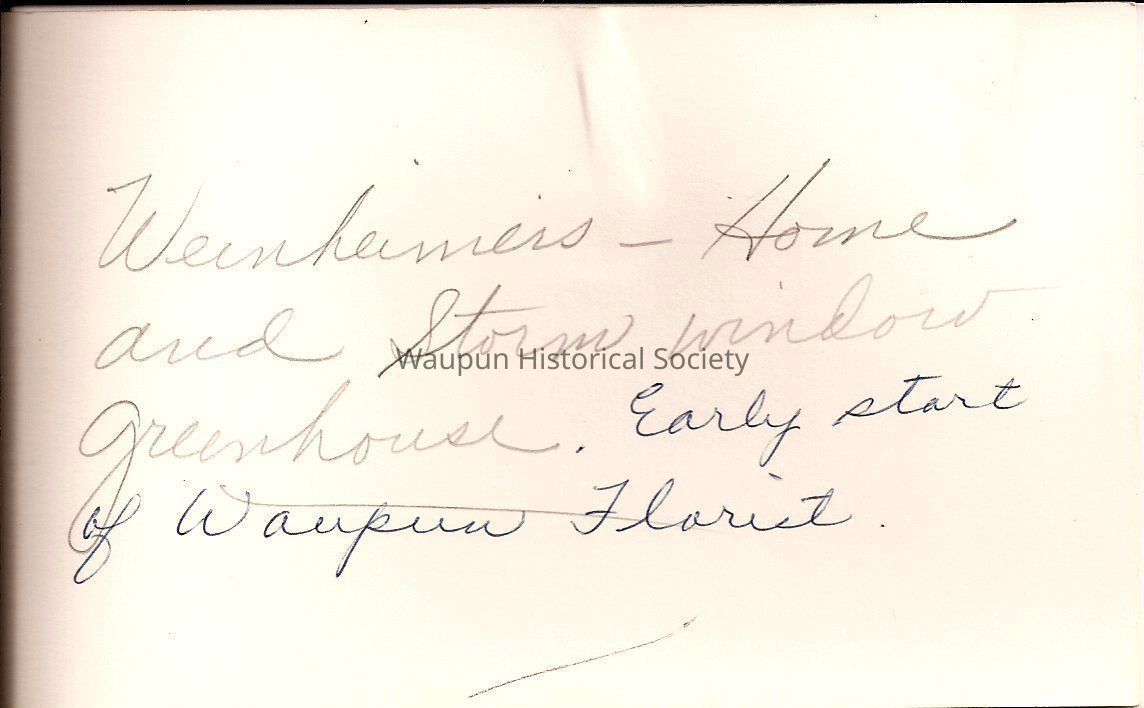 Weinheimers - Home
and Storm window
Waupun Historical Society
greenhouse. Early start
of Waupun Florist.